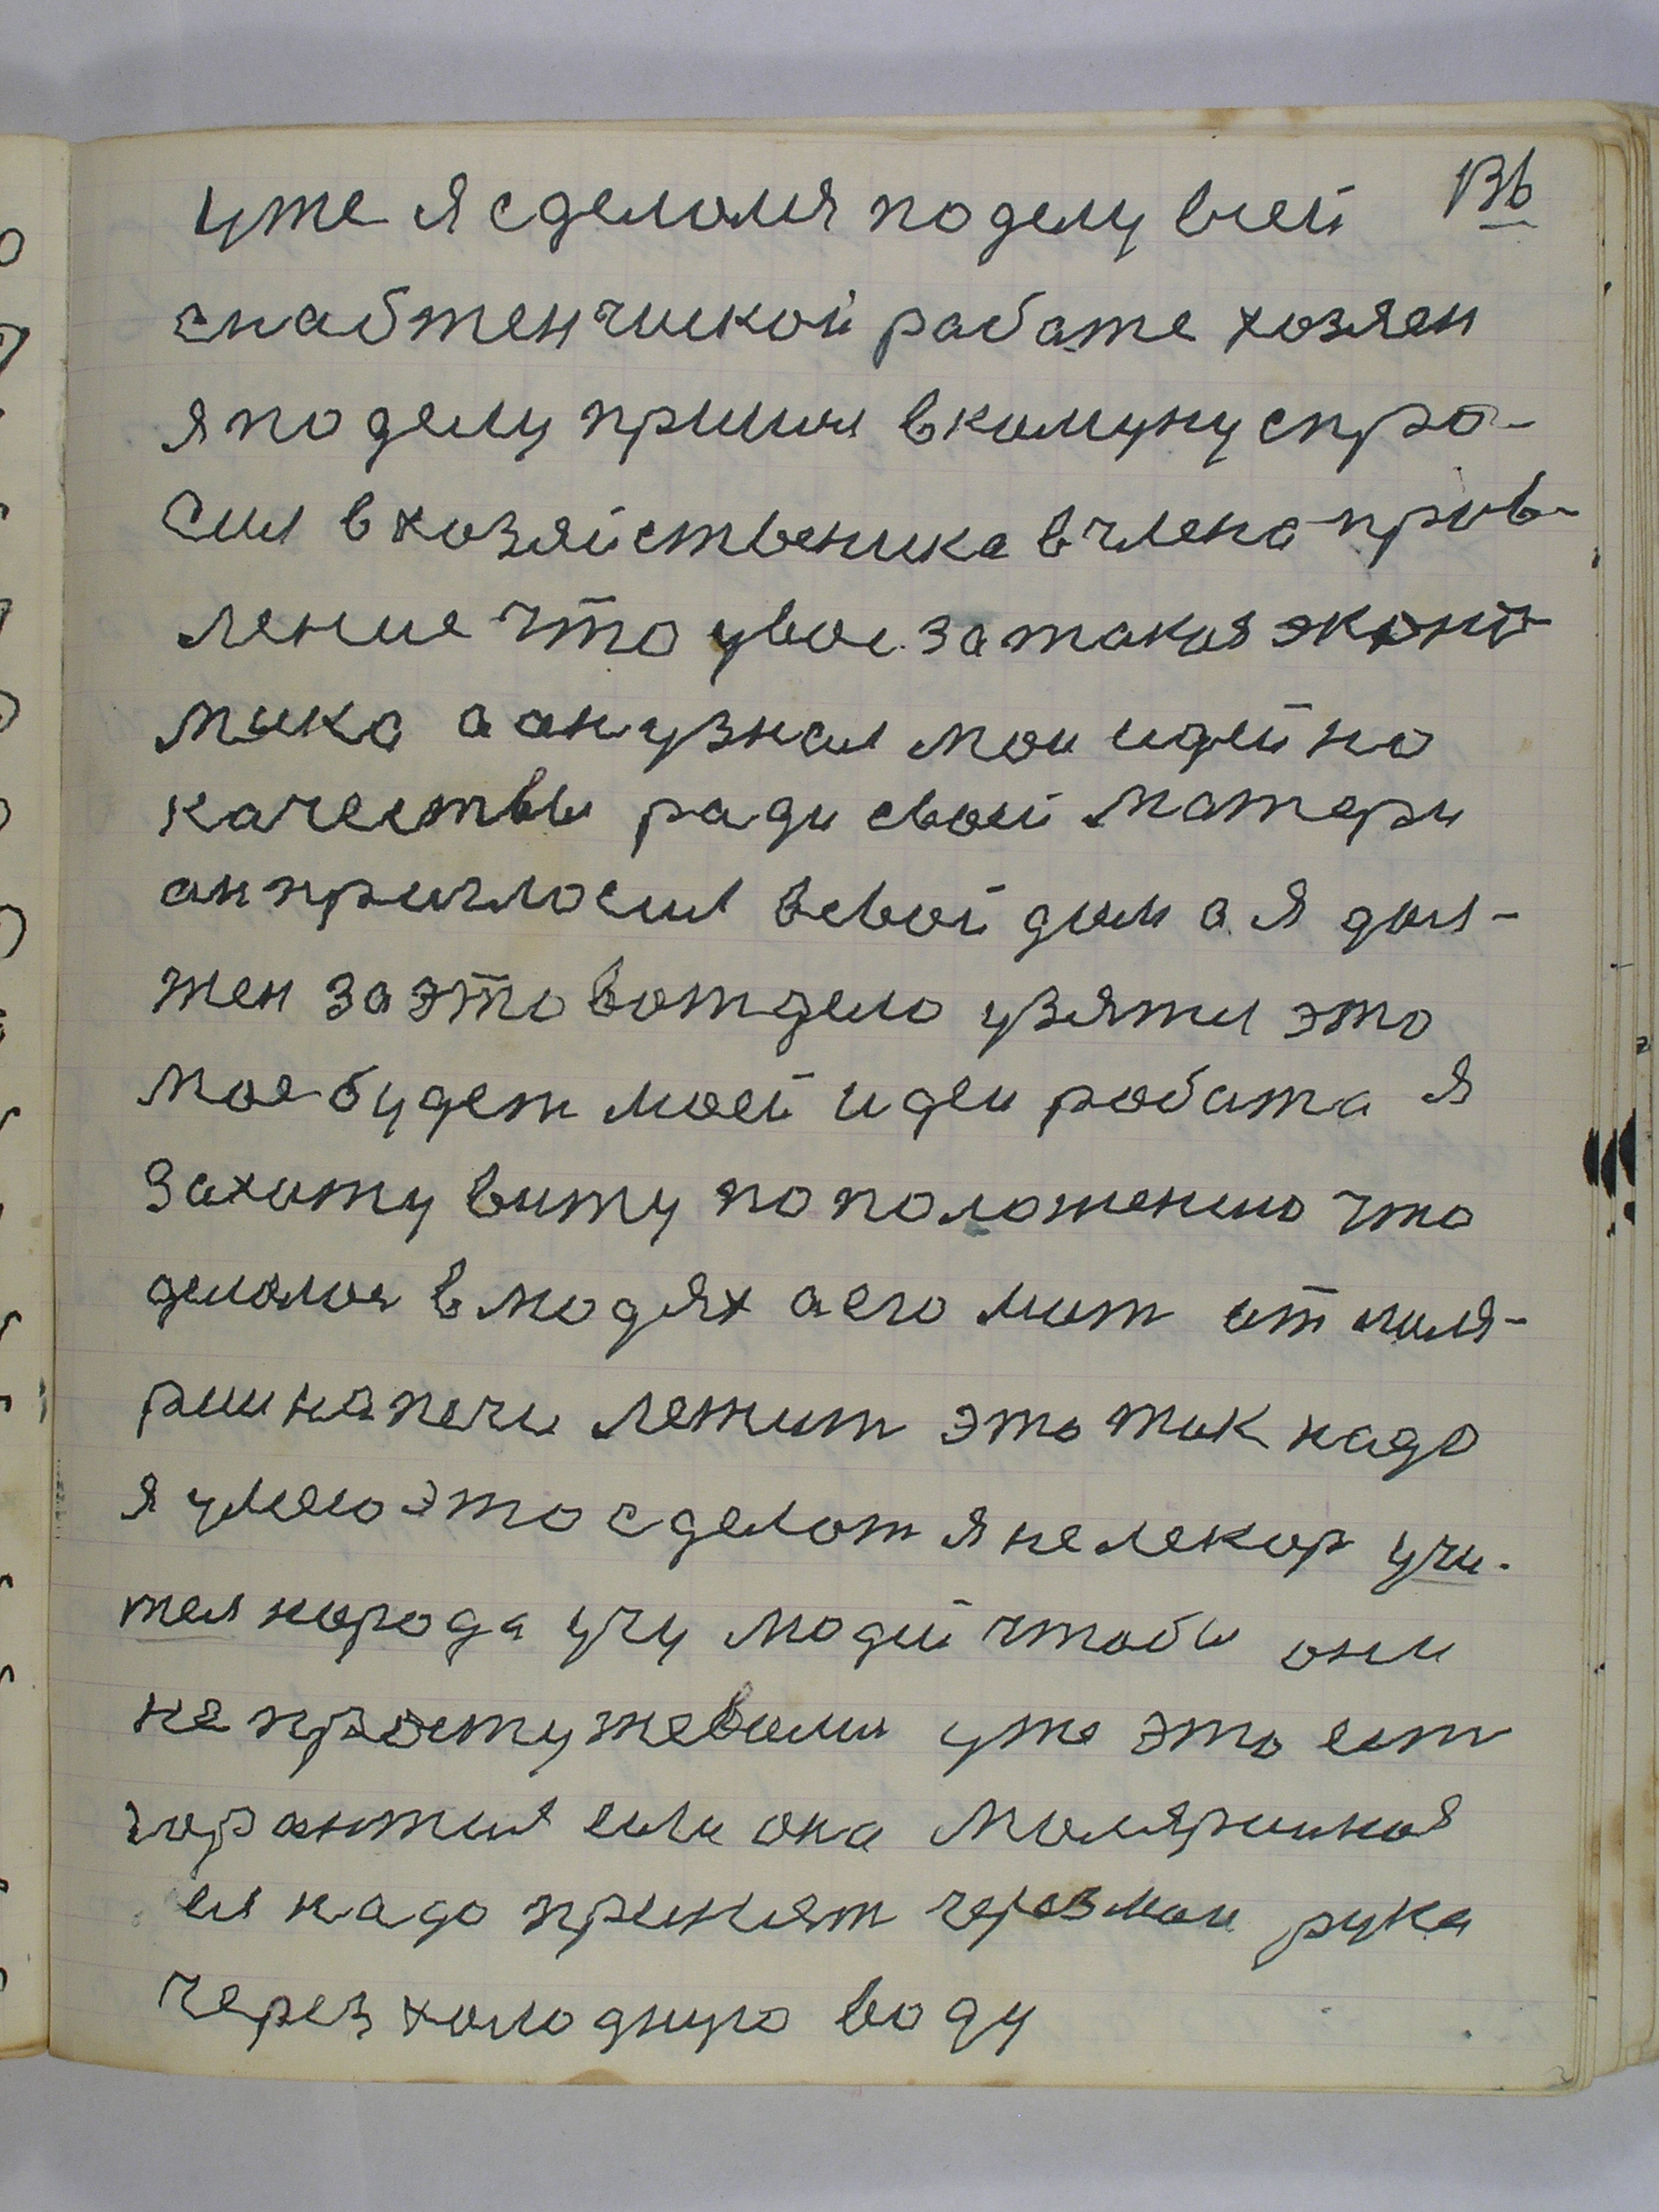 136
уже я сделался по делу всей
снабтенчиской работе хозяен
я по делу пришол в комуну спро-
сил в хозяйственика в члена прав-
ление что увас за такая эконо-
мика а он узнал мои идейно
качествы ради свой матери
он пригласил всвой дом а я дол-
жен за это вот дело узяти это
мое будет моей идеи работа я
захожу вижу по положению что
делался в людях а его мат от маля-
рии на печи лежит это так надо
я умею это сделат я не лекар учи-
тел народа учу людей чтобы они
не простужевали уже это ест
горантия если она маляриная
ея надо принят через мои рука
через холодную воду